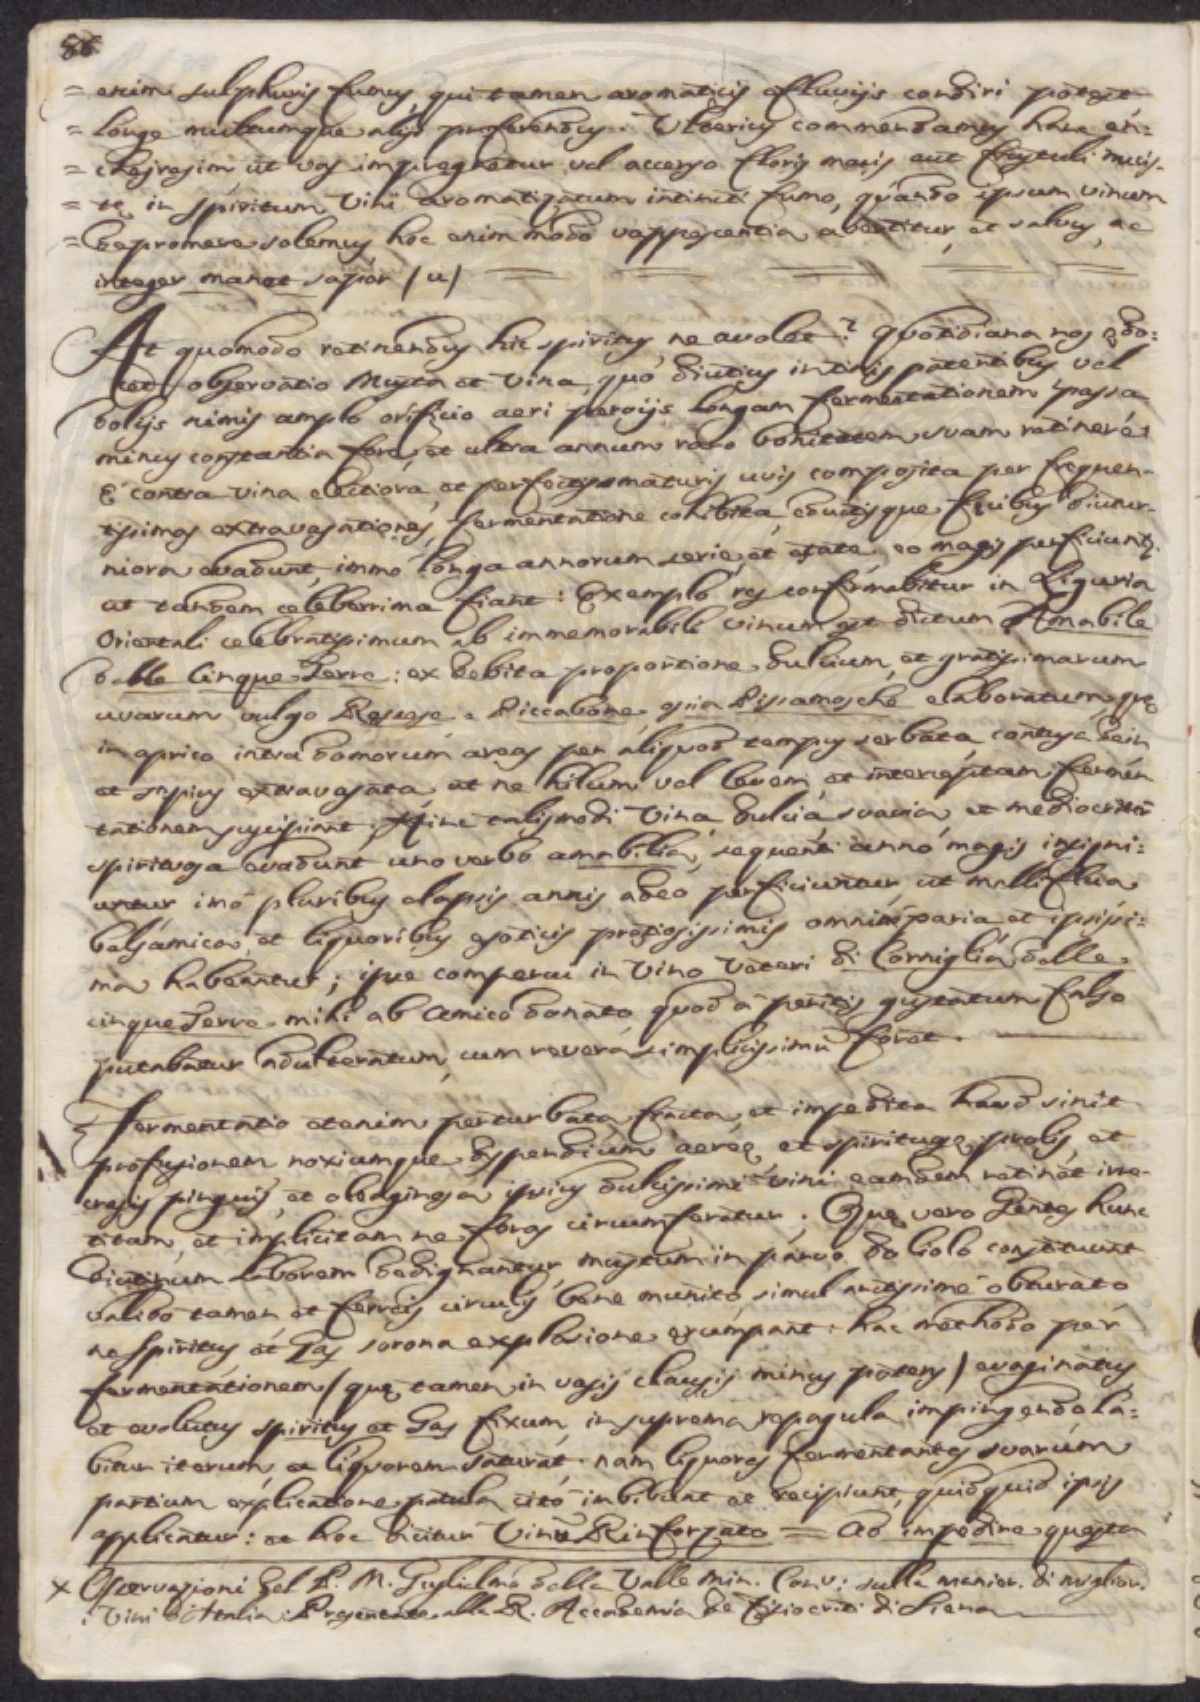 86
= enim sulphuris fumus, qui tamen aromaticis effluvijs condiri potest
= longe multumque alijs preferendus. Ulterius commendamus hanc en=
= cheiresim ut vas impregnetur vel accenso floris macis aut frustuli nucis.
= tę in spiritum Vini aromatizatum intincti fumo, quando ipsum vinum
= depromere solemus hoc enim modo vappescentia avertitur, et salvus, ac
integer manet sapor (u)
At quomodo retinendus hic spiritus ne avolet? quotidiana nos edo:
cet observatio Musta et Vina, quo diutius in tinis patentibus vel
dolijs nimis amplo orificio aeri pervijs longam fermentationem passa
minus constantia fore, et ultra annum raro bonitatem suam retinere:
E' contra Vina electiora, et perfectis maturis uvis composita per frequen-
tissimas extravasationes, fermentatione cohibita, eductisque fecibus diutur-
niora evadunt, immo longa annorum serie, et etate, eo magis perficiunt.
ut tandem celeberrima fiant: Exemplo res confirmabitur in Liguria
Orientali celebratissimum ab immemorabili vinum est dictum Amabile
delle Cinque Terre: ex debita proportione dulcium, et gratissimarum
uvarum vulgo Rossese, e Piccabone, osia Pissamosche elaboratum, quę
in aprico intra domorum areas per aliquod tempus servata, contusa dein
et sepius extravasata, ut ne hilum vel levem, et interceptam fermen
tationem suscipiant, Hinc talismodi Vina dulcia suavia, et mediocriter
spirituosa evadunt uno verbo amabilia, sequenti anno magis insigni:
untur imo pluribus elapsis annis adeo perficiuntur, ut melliflua
balsamica, et liquoribus exoticis pretiosissimis omnino paria, et ipsissi:
ma habeantur; ipse comperui in Vino Veteri di Corniglia delle
cinque Terre mihi ab Amico donato, quod a peritis gustatum falso
putabatur adulteratum, cum revera simplicissimũ foret.
Fermentatio etenim perturbata, fracta, et impedita haud sinit
profusionem noxiumque dispendium aereę, et spirituosę prolis, et
crasis pinguis, et oleaginosa ipsius dulcissimi vini eamdem retinet irre-
titam, et implicitam ne foras circumferatur. Quę vero Gentes hunc
diutinum laborem dedignantur, mustum in parvo doliolo constituunt
valido tamen et ferreis circulis bene munito, simul arctissime obturato
ne Spiritus et Gas sonora explosione erumpant: hac methodo per
fermentationem (quę tamen in vasis clausis minus potens) evaginatus
et evolutus spiritus et Gas fixum, in suprema repagula impingendo la:
bitur iterum, et liquorem saturat. nam liquores fermentantes suarum
partium explicatione patula cito imbibunt ac recipiunt, quidquid ipsis
applicatur: et hoc dicitur Vinũ Rinforzato = Ad impedire questa
× Osservazioni del P. M. Guglielmo della Valle Min. Conv: sulla manier. di miglior.
i Vini d'Italia: Presentate alla R. Accademia de Fisiocritici di Siena